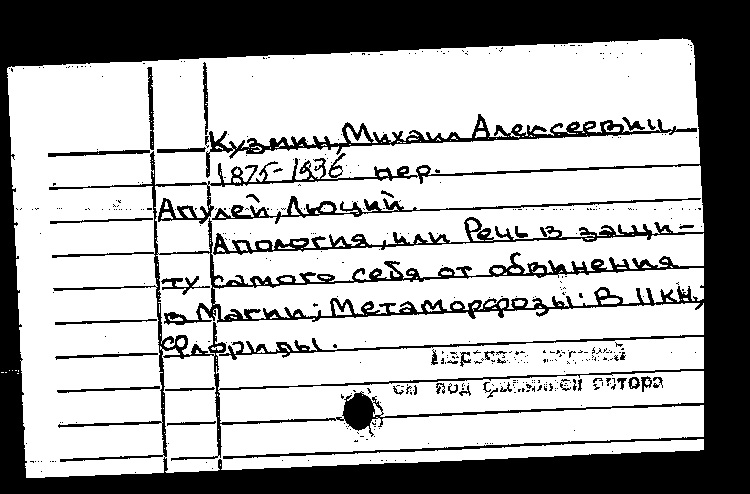 Кузмин, Михаил Алексеевич,
1875-1936 пер.
Апулей, Люций.
Апология, или Речь в защи-
ту самого себя от обвинения
в Магии; Метаморфозы: В 11 кн.;
Флориды.
см под фамилией автора